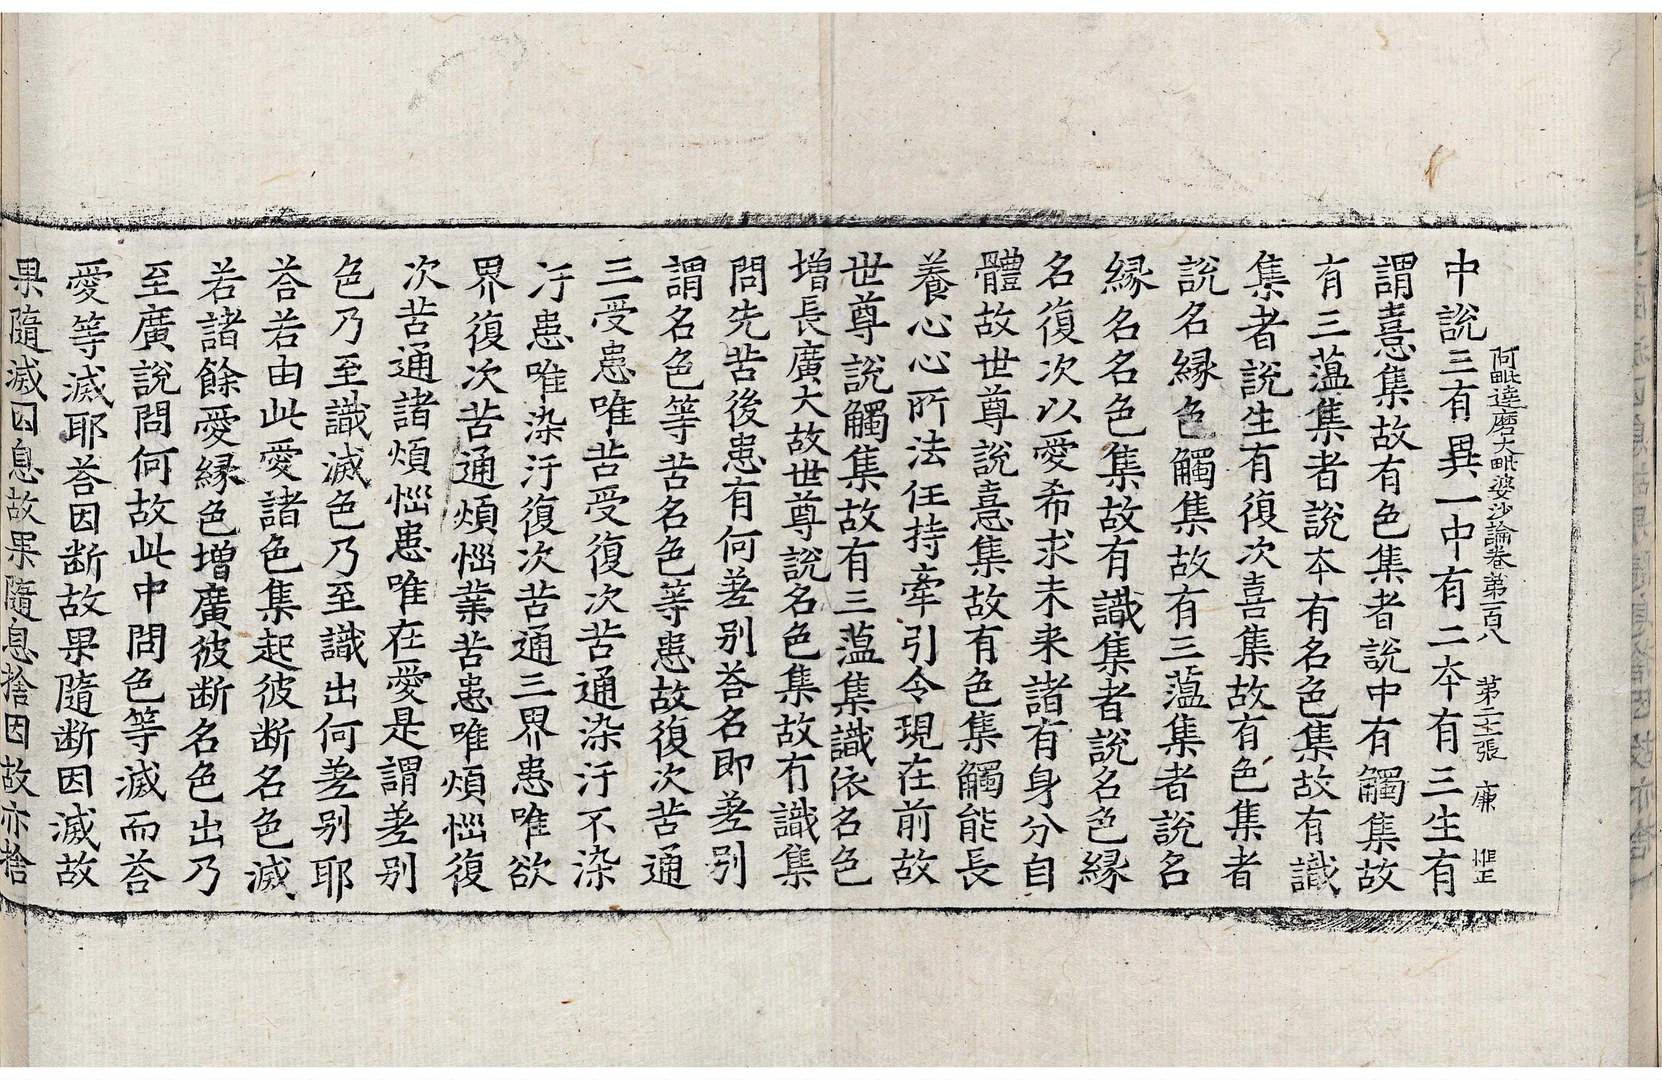 阿毗達磨大毗婆沙論卷第一百八　第二十張　廉
中說三有異一中有二本有三生有
謂憙集故有色集者說中有觸集故
有三薀集者說本有名色集故有識
集者說生有復次喜集故有色集者
說名縁色觸集故有三薀集者說名
縁名名色集故有識集者說名色縁
名復次以愛希求未来諸有身分自
體故世尊說憙集故有色集觸能長
養心心所法任持牽引令現在前故
世尊說觸集故有三薀集識依名色
增長廣大故世尊說名色集故有識集
問先苦後患有何差别荅名即差别
謂名色等苦名色等患故復次苦通
三受患唯苦受復次苦通染汙不染
汙患唯染汙復次苦通三界患唯欲
界復次苦通煩惱業苦患唯煩惱復
次苦通諸煩惱患唯在愛是謂差别
色乃至識滅色乃至識出何差别耶
荅若由此愛諸色集起彼断名色滅
若諸餘愛縁色增廣彼断名色出乃
至廣說問何故此中問色等滅而荅
愛等滅耶荅因断故果隨断因滅故
果隨滅因息故果隨息捨因故亦捨